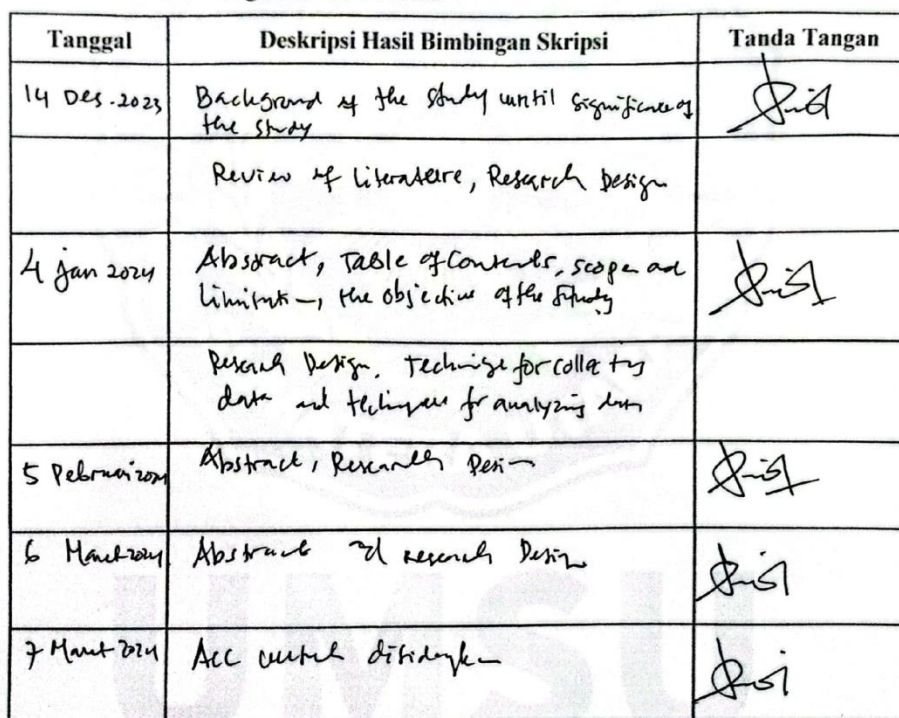 Tanggal Deskripsi Hasil Bimbingan Skripsi Tanda Tangan
14 Des. 2023 Background of the study until significance of
the study
Review of Literature, Research Design
4 Jan 2024 Abstract, Table of Contents, scope and
Limitation, the objective of the study
Research Design, Technique for collecting
data and techniques for analyzing data
5 Pebruari 2024 Abstract, Research Design
6 Maret 2024 Abstract and research Design
7 Maret 2024 Acc untuk disidangkan
UMSU